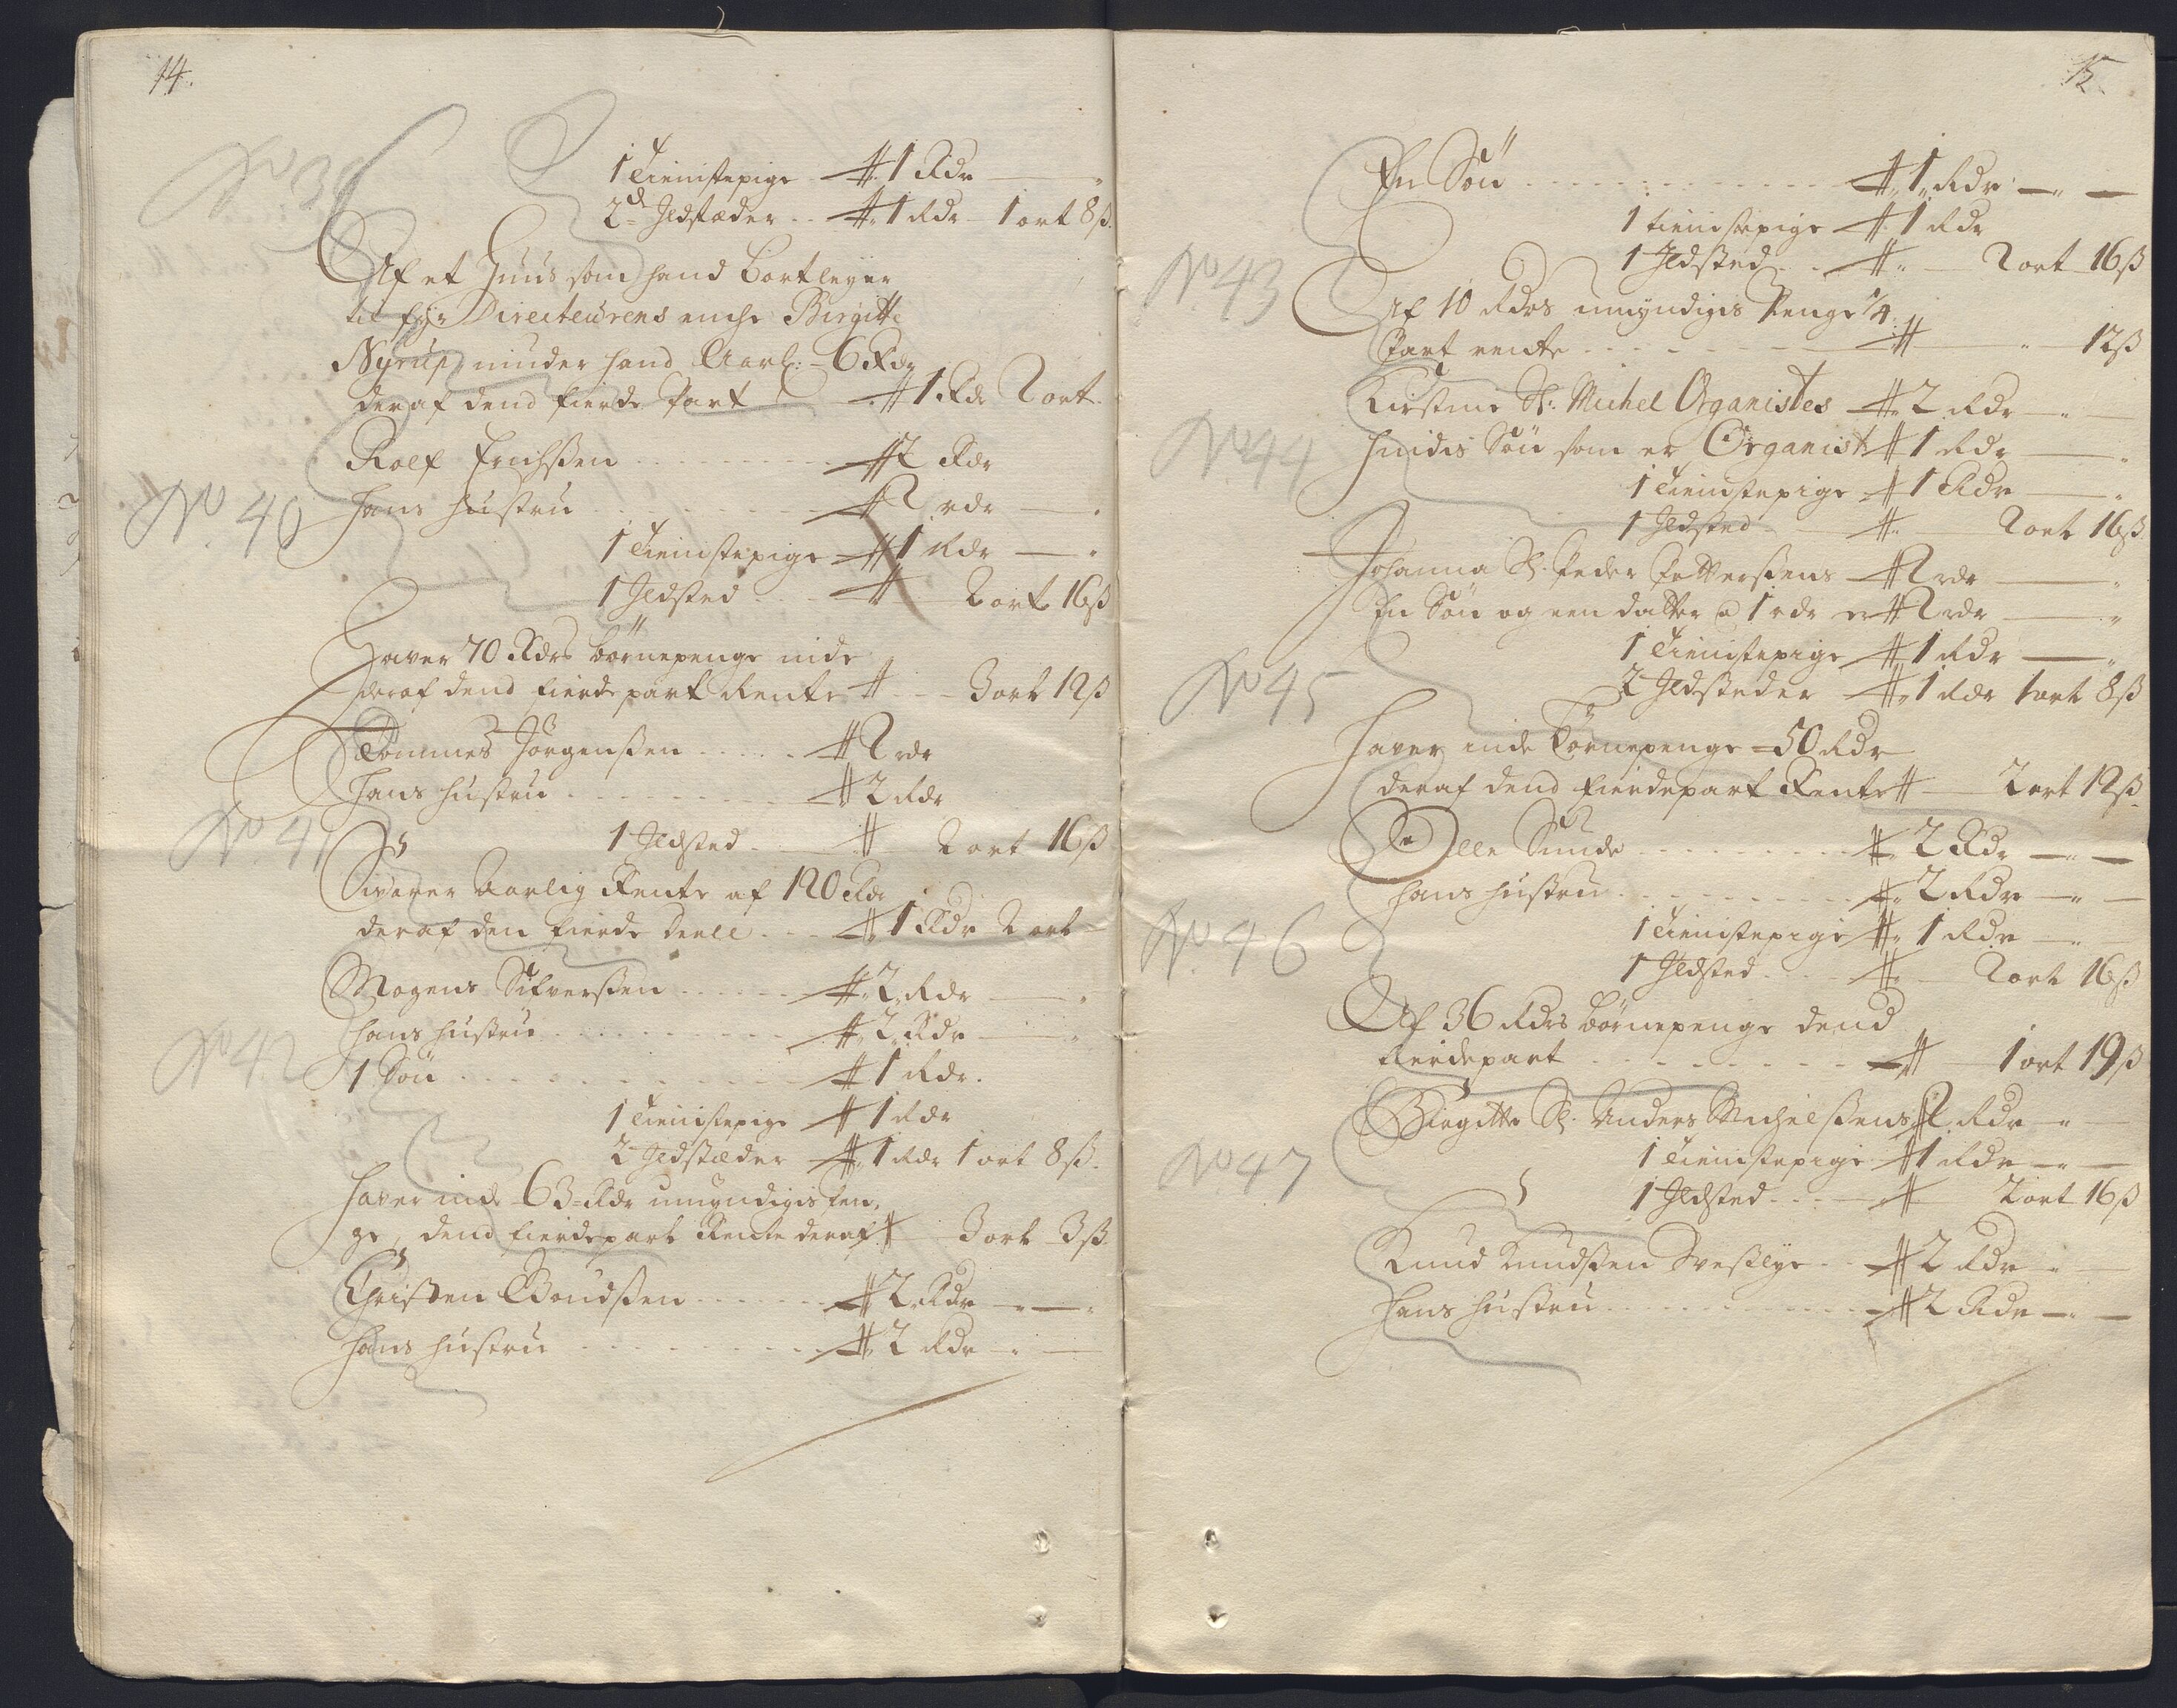 14.
No 39
1 Tienistepige # 1 Rdr
2de Ildstæder # 1 Rdr 1 ort 8 ß
Af et Huus som hand bortleyer
til Directeurens enche Birgitte
Nyrup, ninder hand Aarl: 6 Rdr
deraf dend fierde Part # 1 Rdr 2 ort
No 40
Rolf Erichßen # 2 Rdr
hans hustru # 2 rdr
1 Tienistepige # 1 Rdr
1 Ildsted # 2 ort 16 ß
Haver 70 Rdrs børnepenge inde
deraf dend fierde part Rente # 3 ort 12 ß
No 41
Tommes Jörgenßen # 2 rdr
Hans hustru # 2 Rdr
1 Ildsted # 2 ort 16 ß
Svarer Aarlig Rente af 120 Rdr
deraf den fierde deell # 1 Rdr 2 ort
No 42
Mogens Sifverßen # 2 Rdr
hans hustru # 2 Rdr
1 Sön # 1 Rdr.
1 Tienistepige # 1 Rdr
2 Ildstæder # 1 Rdr 1 ort 8 ß.
haver inde 63 Rdr umyndigis pen,
ge, dend fierdepart Rente deraf # 3 ort 3 ß
Christen Boudßen # 2 Rdr
hans hustru # 2 Rdr
15.
En Sön # 1 Rdr
1 tienistepige # 1 Rdr
1 Ildsted # 2 ort 16 ß
No 43
Af 10 Rdrs umyndigis Penge 1/4
Part rente # 12 ß
No 44
Kirstine Sl: Michel Organistes # 2 Rdr
hindis Sön som er Organist # 1 Rdr
1 Tienistepige # 1 Rdr
1 Ildsted # 2 ort 16 ß
Johanna Sl. Peder Petterßens # 2 rdr
En Sön og een datter a 1 rdr er # 2 rdr
1 Tienistepige # 1 Rdr
2 Ildsteder # 1 Rdr 1 ort 8 ß
No 45
Haver inde Börnepenge 50 Rdr
deraf dend fierdepart Rente # 2 ort 12 ß
Olle Sunde # 2 Rdr
hans hustru # 2 Rdr
No 46
1 Tienistepige # 1 Rdr
1 Ildsted # 2 ort 16 ß
Af 36 Rdrs börnepenge dend
fierdepart # 1 ort 19 ß
No 47
Birgitte Sl. Anders Michelßens # 2 Rdr
1 Tienistepige # 1 Rdr
1 Ildsted # 2 ort 16 ß
Knud Knudßen # 2 Rdr
Hans hustru # 2 Rdr